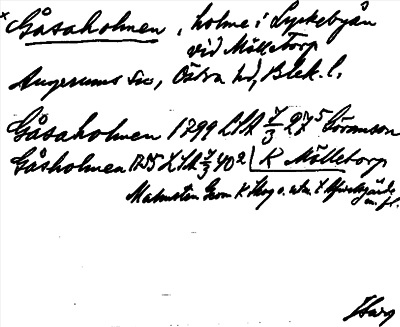 × Gåsaholmen, holme i Lyckebyån
vid Mölletorp
Augerums sn, Östra hd, Blek. l.
Gåsaholmen 1799 LSA 7/3 27⁵ Göransson
Gåsholmen 1755 LSA 7/3 40² K Mölletorp
Malmsten Geom K Skog o.
m. fl.